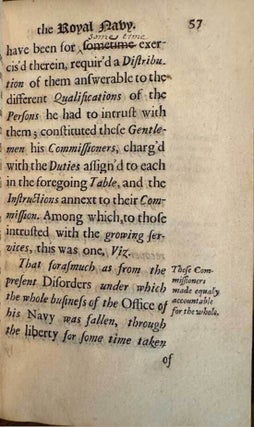 the Royal Navy. 57
some time
have been for sometime exer-
cis'd therein, requir'd a Distribu-
tion of them answerable to the
different Qualifications of the
Persons he had to intrust with
them; constituted these Gentle-
men his Commissioners, charg'd
with the Duties assign'd to each
in the foregoing Table, and the
Instructions annext to their Com-
mission. Among which, to those
intrusted with the growing ser-
vices, this was one, Viz.
That forasmuch as from the
present Disorders under which
the whole business of the Office of
his Navy was fallen, through
the liberty for some time taken
of
These Com-
missioners
made equaly
accountable
for the whole.